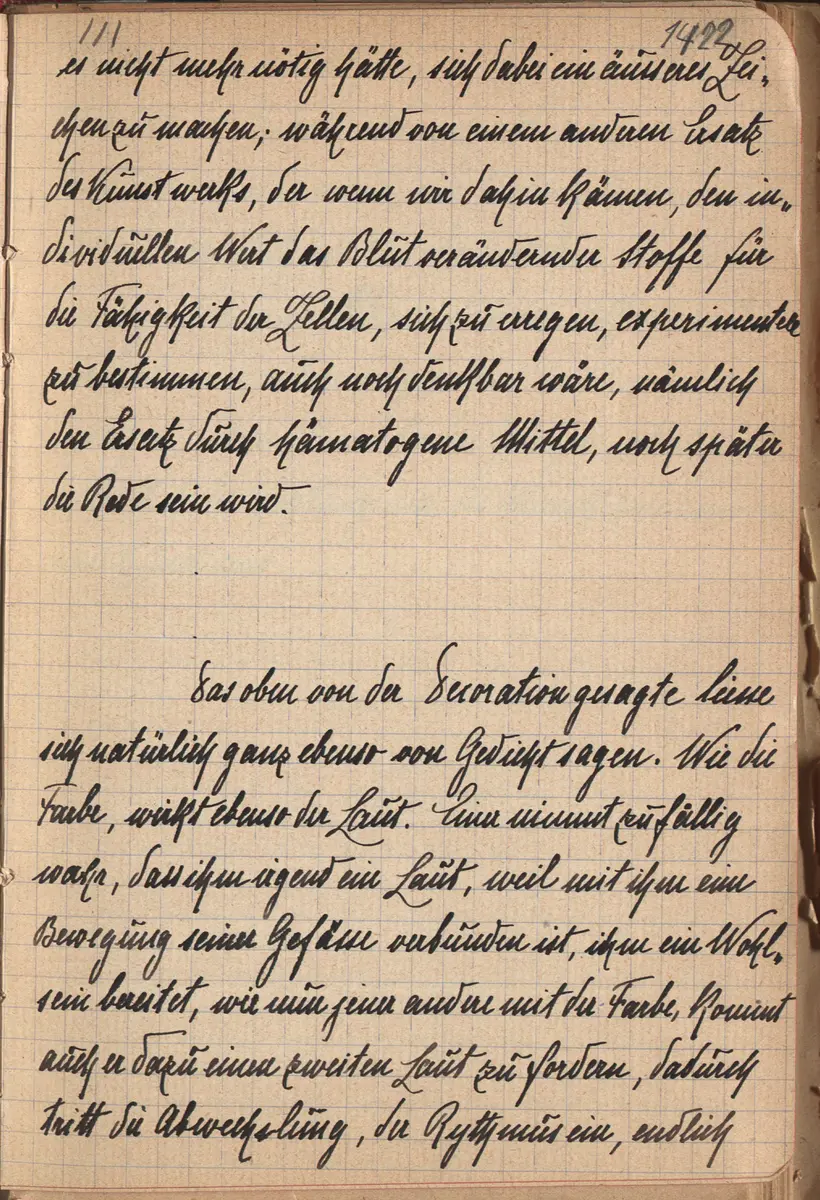 111 1422
es nicht mehr nötig hätte, sich dabei ein äusseres Zei-
chen zu machen; während von einem anderen Ersatz
des Kunstwerks, der wenn wir dahin kämen, den in-
dividuellen Wert das Blut verändernder Stoffe für
die Fähigkeit der Zellen, sich zu erregen, experimentell
zu bestimmen, auch noch denkbar wäre, nämlich
den Ersatz durch hämatogene Mittel, noch später
die Rede sein wird.
Das oben von der Decoration gesagte liesse
sich natürlich ganz ebenso von Gedicht sagen. Wie die
Farbe, wirkt ebenso der Laut. Einer nimmt zufällig
wahr, dass ihm irgend ein Laut, weil mit ihm eine
Bewegung seiner Gefässe verbunden ist, ihm ein Wohl-
sein bereitet, wie nun jener andere mit der Farbe, kommt
auch er dazu einen zweiten Laut zu fordern, dadurch
tritt die Abwechslung, der Rythmus ein, endlich